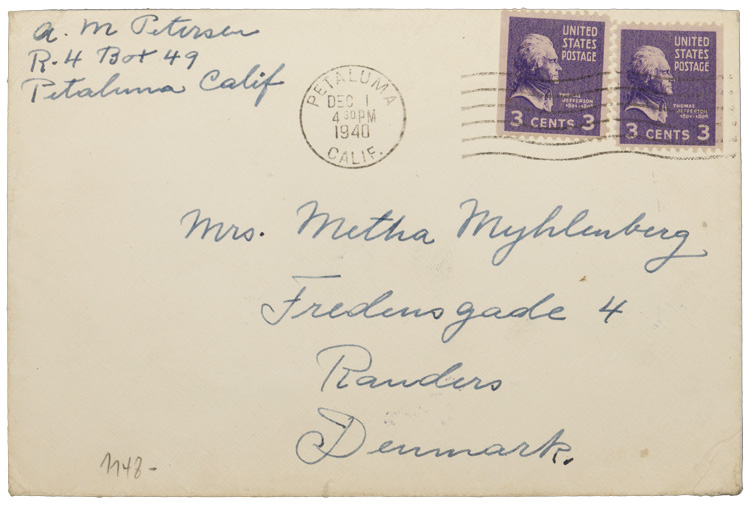 A. M Petersen
R-4 Box 49
Petaluma Calif
PETALUMA
DEC 1
4 30 PM
1940
CALIF.
UNITED
STATES
POSTAGE
THOMAS
JEFFERSON
1801-1809
3 CENTS 3
UNITED
STATES
POSTAGE
THOMAS
JEFFERSON
1801-1809
3 CENTS 3
Mrs. Metha Myhlenberg
Fredensgade 4
Randers
Denmark.